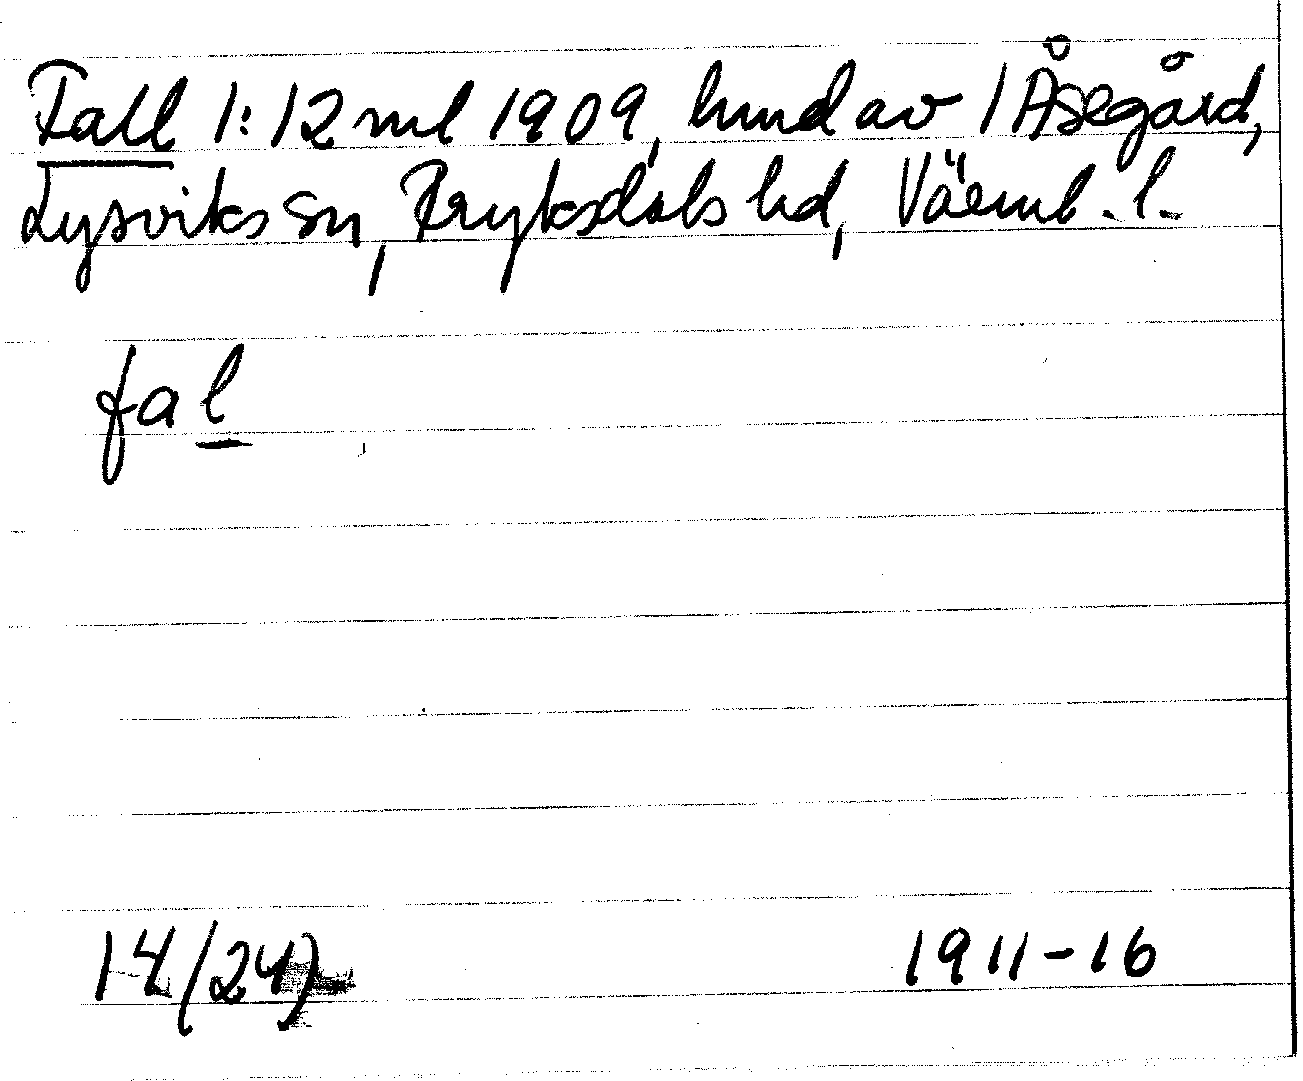 Fall 1:12 ml 1909, hmd av 1 Åsegård,
Lysviks sn, Fryksdals hd, Värml. l.
fal
14/24)
1911-16